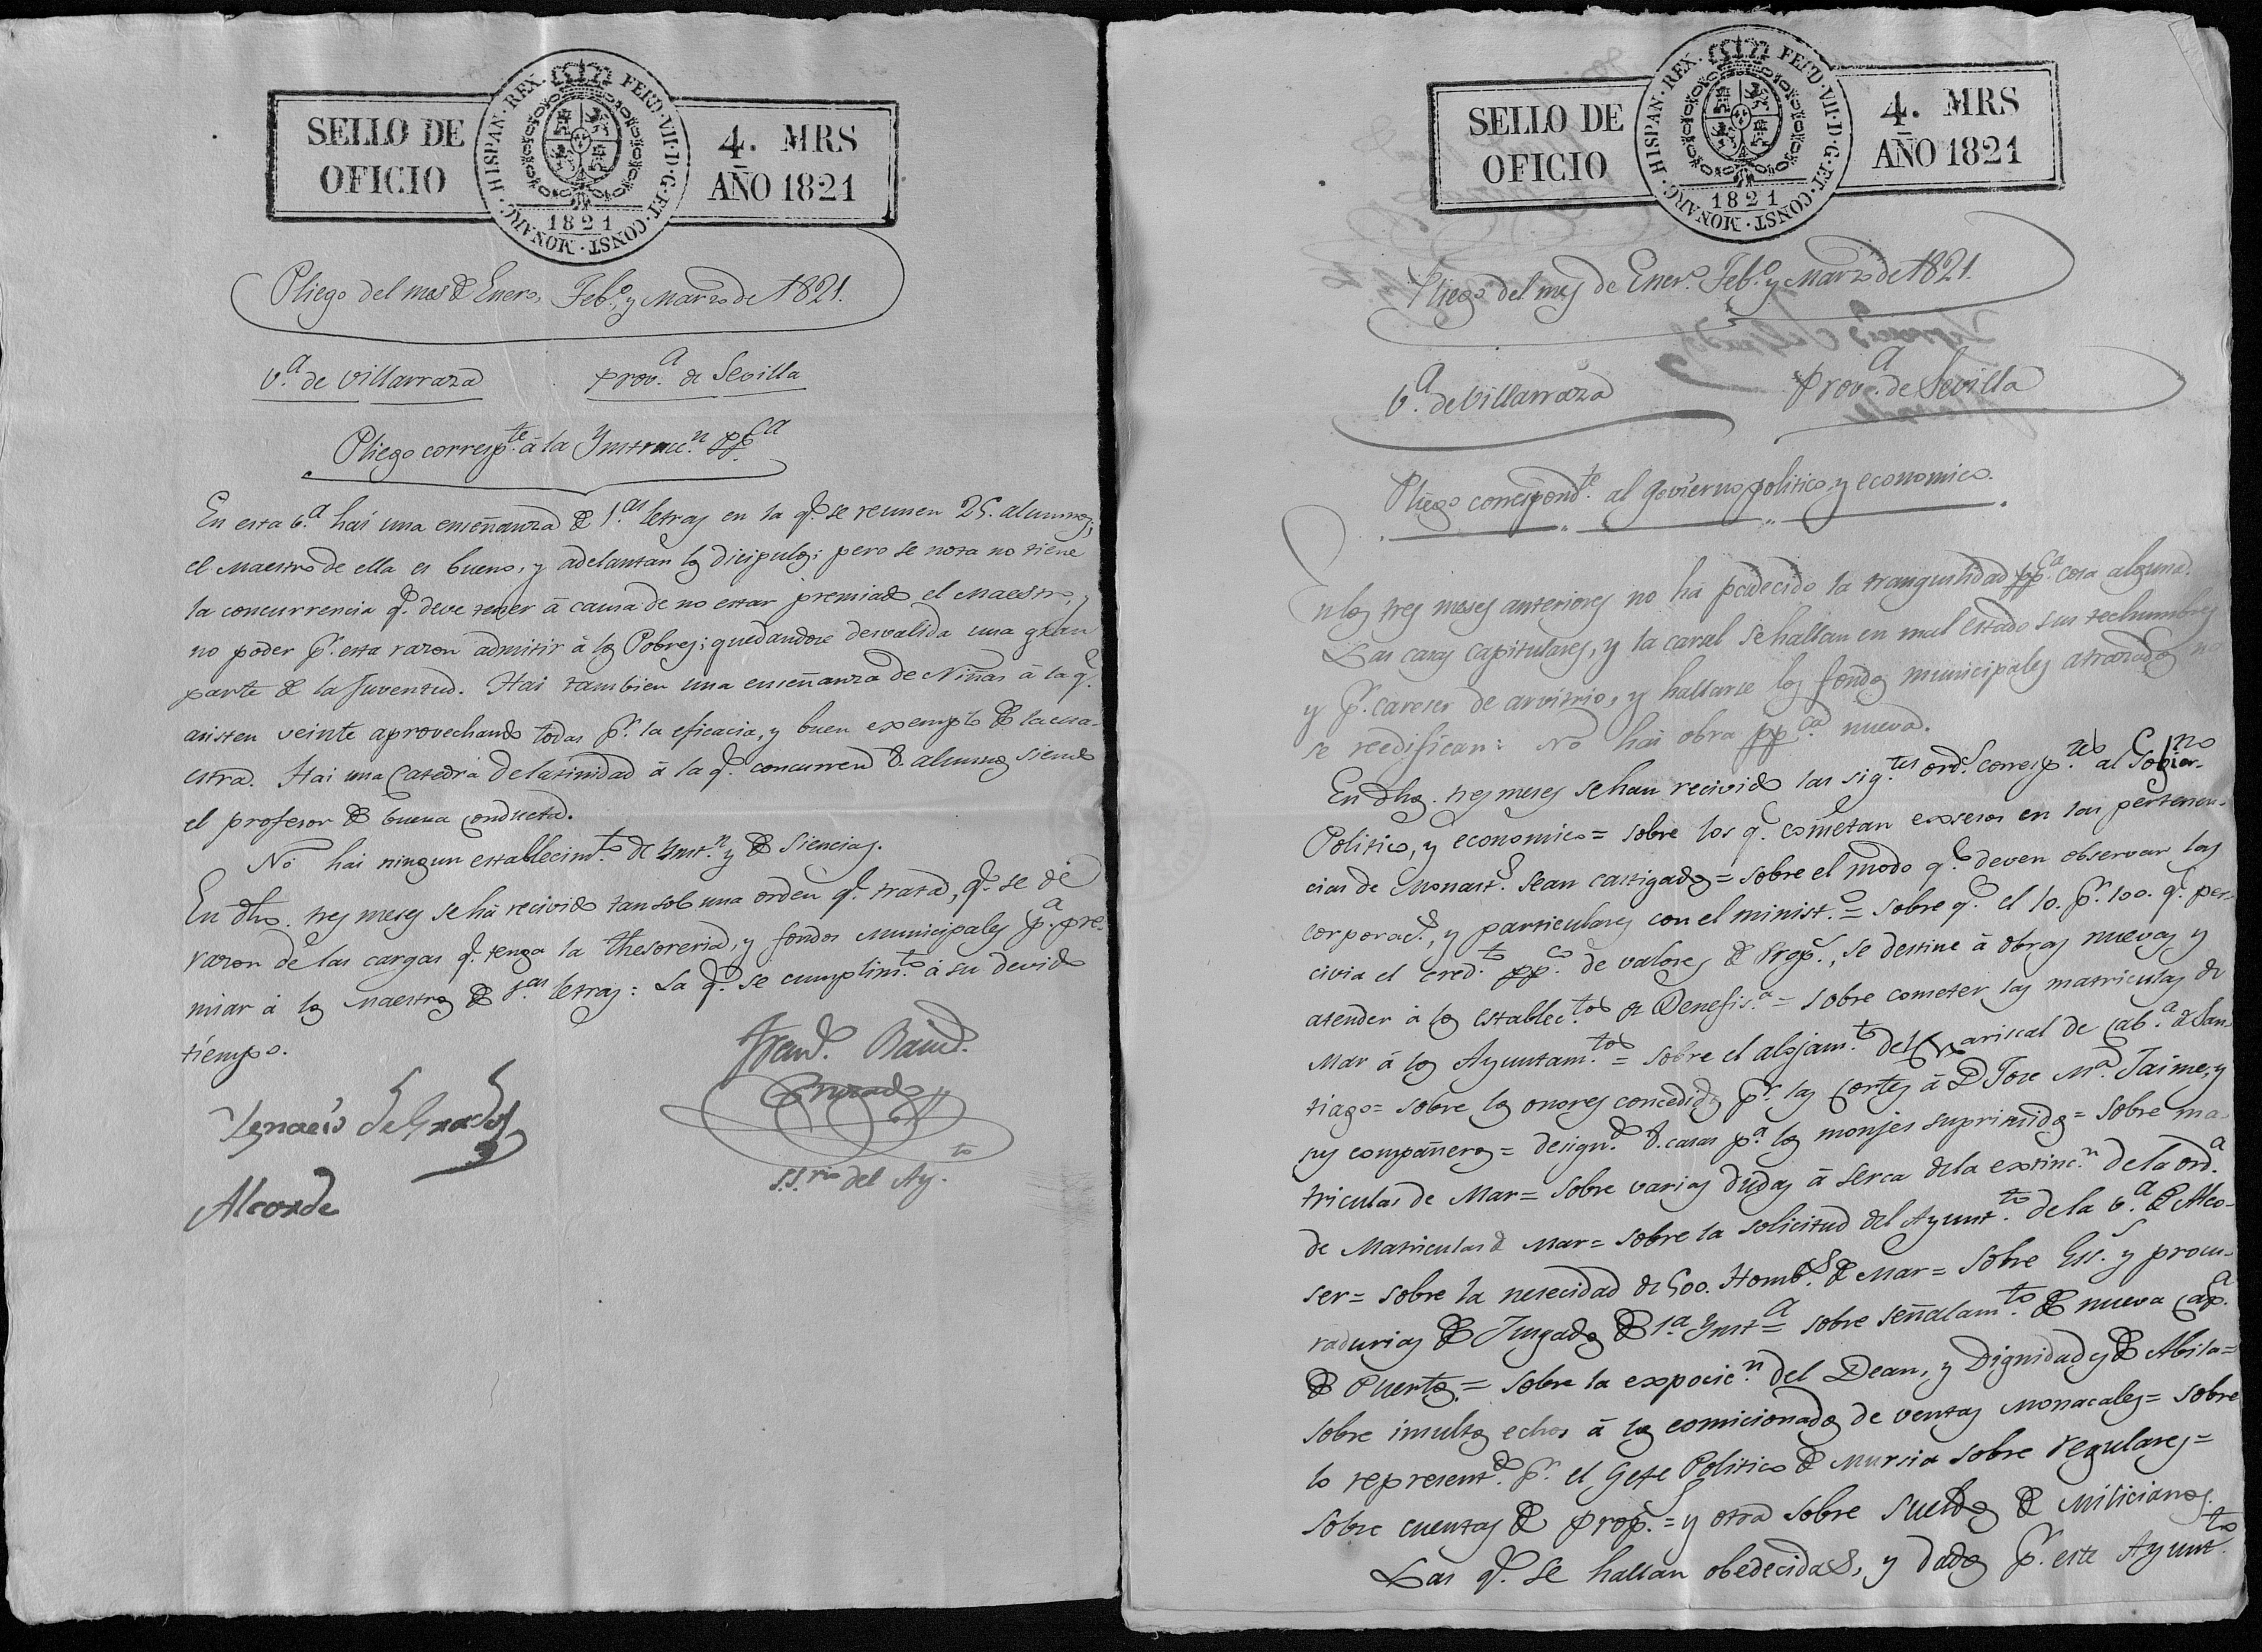 SELLO DE
OFICIO
HISPAN·REX· FERD·VII·D·G·ET·CONST·MONARC·
1821
4. MRS
AÑO 1821
Pliego del mes de Enero, Feb.o y Marzo de 1821.
V.a de Villarraza Prov.a de Sevilla
Pliego corresp.te á la Ynstrucc.n pp.ca
En esta v.a hai una enseñanza de 1.as letras en la q.e se reunen 25. alumnos;
el Maestro de ella es bueno, y adelantan los dicipulos; pero se nota no tiene
la concurrencia q.e deve tener á causa de no estar premiado el Maestro, y
no poder p.r esta razon admitir á los Pobres; quedandose desvalida una gran
parte de la Juventud. Hai tambien una enseñanza de Niñas á la q.e
asisten veinte aprovechando todas p.r la eficacia, y buen exemplo de la ma-
estra. Hai una Catedra de latinidad á la q.e concurren 8. alumnos siendo
el profesor de buena conducta.
No hai ningun establecim.to de Ynst.n y de Siencias.
En dhos. tres meses se há recivido tan solo una orden q.e trata, q.e se dé
razon de las cargas q.e tenga la thesoreria, y fondos Municipales p.a pre-
miar á los Maestros de 1.as letras: La q.e se cumplim.to á su devido
tiempo.
Ygnacio Delgado
Alcalde
Fran.co
S.S.rio del Ay.to
SELLO DE
OFICIO
HISPAN·REX· FERD·VII·D·G·ET·CONST·MONARC·
1821
4. MRS
AÑO 1821
Pliego del mes de Ener.o Feb.o y Marzo de 1821.
V.a de Villarraza Prov.a de Sevilla
Pliego correspond.te al Govierno politico, y economico.
En los tres meses anteriores no há padecido la tranquilidad pp.ca cosa alguna.
Las casas capitulares, y la carsel se hallan en mal estado sus techumbres
y p.r careser de arvitrio, y hallarse los fondos municipales atrazados no
se reedifican: No hai obra pp.ca nueva.
En dhos. tres meses se han recivido las sig.tes ord.s corresp.tes al Gobier.no
Politico, y economico = sobre los q.e cometan exsesos en las pertenen-
cias de Monast.s sean castigados = sobre el modo q.e deven observar las
corporac.s, y particulares con el minist.o = sobre q.e el 10. p.r 100. q.e per-
civia el cred.to pp.co de valores de Prop.s, se destine á obras nuevas y
atender á los establec.tos de Benefis.a = sobre cometer las matriculas de
Mar á los Ayuntam.tos = sobre el alojam.to del Mariscal de Cab.a de San-
tiago = sobre los onores concedidos p.r las Cortes á D. Jose M.a Jaime, y
sus compañeros = design.do 8. casas p.a los monjes suprimidos = sobre ma-
triculas de Mar = sobre varias dudas á serca de la extinc.n de la ord.a
de Matriculas de Mar = sobre la solicitud del Ayunt.to de la v.a de Alco-
ser = sobre la nesecidad de 500. Homb.s de Mar = sobre Ess.s y procu-
radurias de Jusgados de 1.a Ynst.a = sobre señalam.to de nueva Cap.a
de Puertos. = sobre la exposic.n del Dean, y Dignidades de Abila =
sobre insultos echos á los comicionados de ventas Monacales = sobre
lo represent.do p.r el Gefe Politico de Mursia sobre regulares =
sobre cuentas de prop.s = y otra sobre sueldos de Milicianos.
Las q.e se hallan obedecidas, y dados p.r este Ayunt.to